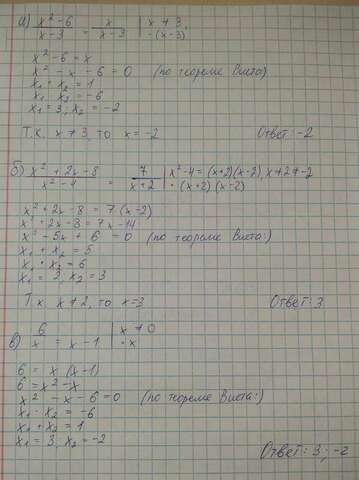 а) x²-6/x-3 = x/x-3 | x≠3, ·(x-3)
x²-6 = x
x² - x - 6 = 0 (по теореме Виета)
x₁ + x₂ = 1
x₁ · x₂ = -6
x₁ = 3, x₂ = -2
Т.к. x≠3, то x = -2 Ответ: -2
б) x² + 2x - 8/x² - 4 = 7/x+2 | x²-4 = (x+2)(x-2), x≠2≠-2 ·(x+2)(x-2)
x² + 2x - 8 = 7(x-2)
x² + 2x - 8 = 7x - 14
x² - 5x + 6 = 0 (по теореме Виета:)
x₁ + x₂ = 5
x₁ · x₂ = 6
x₁ = 3, x₂ = 3
Т.к. x≠2, то x=3 Ответ: 3
в) 6/x = x - 1 | x≠0 ·x
6 = x (x-1)
6 = x² - x
x² - x - 6 = 0 (по теореме Виета:)
x₁ · x₂ = -6
x₁ + x₂ = 1
x₁ = 3, x₂ = -2
Ответ: 3; -2